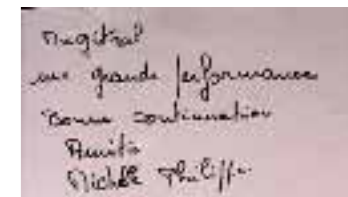 Magitral
une grande performance
Bonne continuation
Amitié
Michèle Philippe